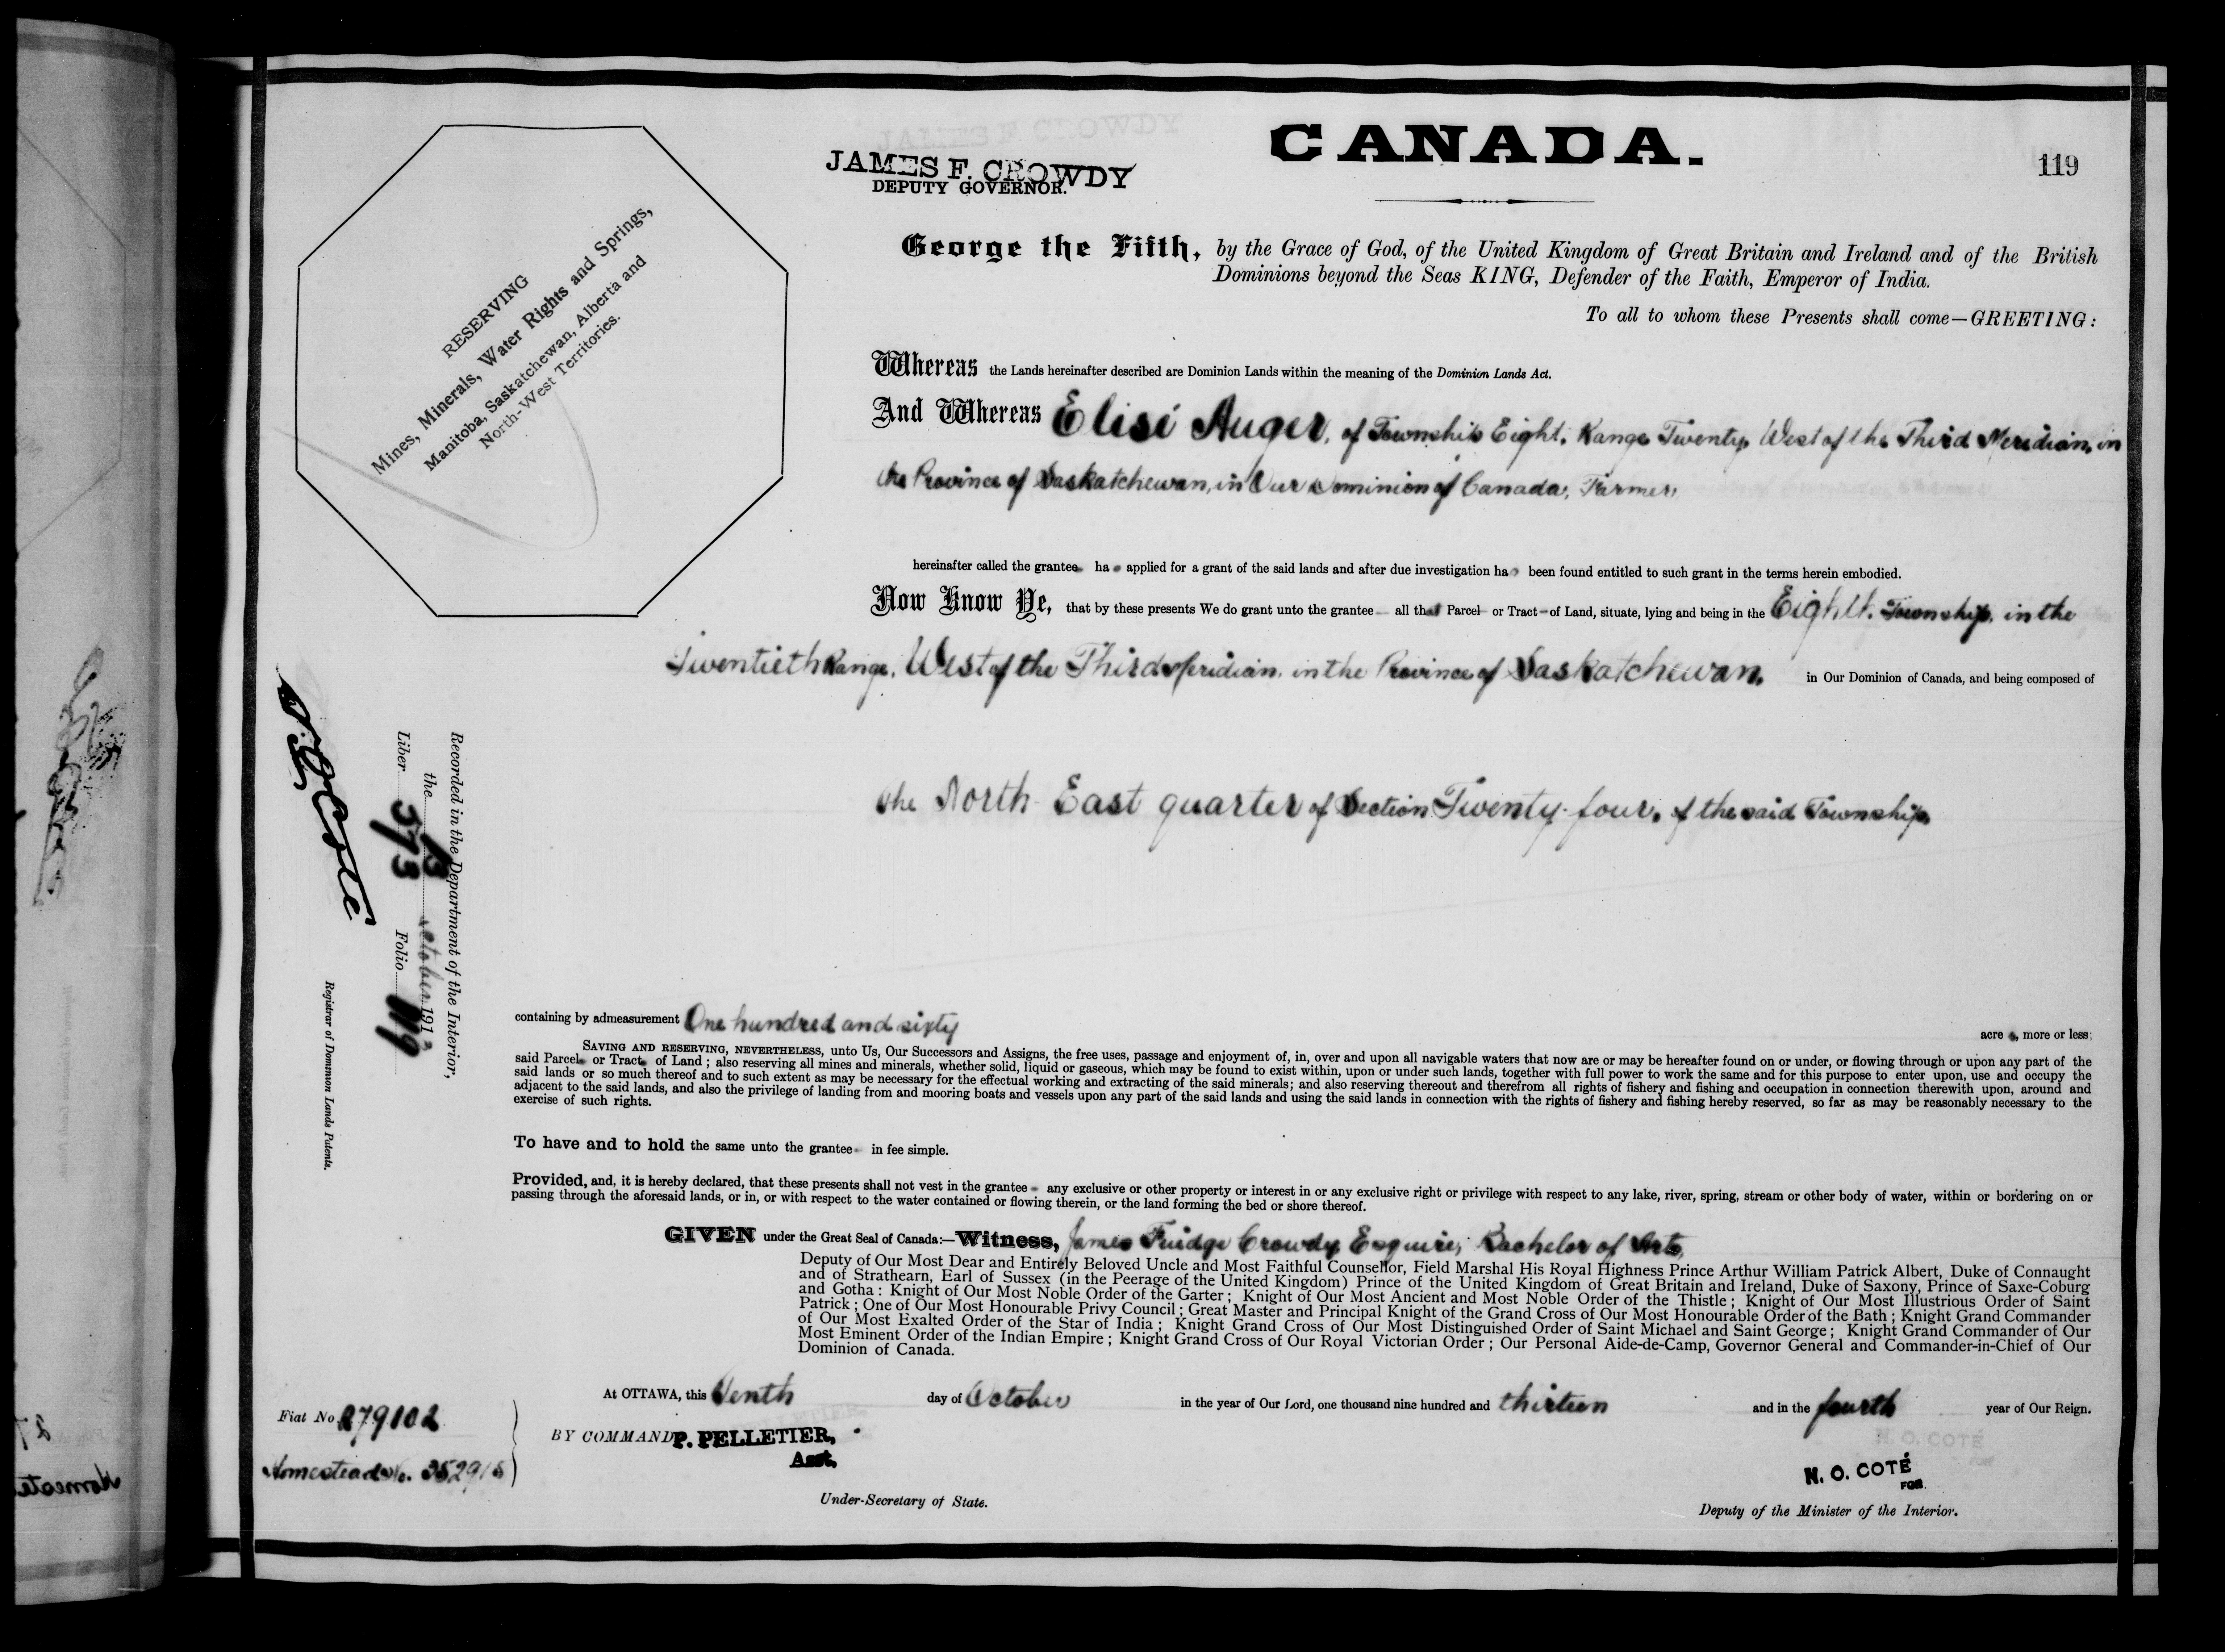 CANADA.
119
JAMES F. CROWDY
DEPUTY GOVERNOR.
RESERVING
Mines, Minerals, Water Rights and Springs,
Manitoba, Saskatchewan, Alberta and
North-West Territories.
George the Fifth, by the Grace of God, of the United Kingdom of Great Britain and Ireland and of the British
Dominions beyond the Seas KING, Defender of the Faith, Emperor of India.
To all to whom these Presents shall come—GREETING:
Whereas the Lands hereinafter described are Dominion Lands within the meaning of the Dominion Lands Act.
And Whereas Elisé Auger, of Township Eight, Range Twenty, West of the Third Meridian, in
the Province of Saskatchewan, in Our Dominion of Canada, Farmer,
hereinafter called the grantee has applied for a grant of the said lands and after due investigation has been found entitled to such grant in the terms herein embodied.
Now Know Ye, that by these presents We do grant unto the grantee all that Parcel or Tract of Land, situate, lying and being in the Eighth Township, in the
Twentieth Range, West of the Third Meridian, in the Province of Saskatchewan, in Our Dominion of Canada, and being composed of
the North East quarter of Section Twenty-four, of the said Township,
containing by admeasurement One hundred and sixty acres, more or less;
SAVING AND RESERVING, NEVERTHELESS, unto Us, Our Successors and Assigns, the free uses, passage and enjoyment of, in, over and upon all navigable waters that now are or may be hereafter found on or under, or flowing through or upon any part of the
said Parcel or Tract of Land; also reserving all mines and minerals, whether solid, liquid or gaseous, which may be found to exist within, upon or under such lands, together with full power to work the same and for this purpose to enter upon, use and occupy the
said lands or so much thereof and to such extent as may be necessary for the effectual working and extracting of the said minerals; and also reserving thereout and therefrom all rights of fishery and fishing and occupation in connection therewith upon, around and
adjacent to the said lands, and also the privilege of landing from and mooring boats and vessels upon any part of the said lands and using the said lands in connection with the rights of fishery and fishing hereby reserved, so far as may be reasonably necessary to the
exercise of such rights.
To have and to hold the same unto the grantee in fee simple.
Provided, and, it is hereby declared, that these presents shall not vest in the grantee any exclusive or other property or interest in or any exclusive right or privilege with respect to any lake, river, spring, stream or other body of water, within or bordering on or
passing through the aforesaid lands, or in, or with respect to the water contained or flowing therein, or the land forming the bed or shore thereof.
GIVEN under the Great Seal of Canada:—Witness, James Fuidge Crowdy, Esquire, Bachelor of Arts,
Deputy of Our Most Dear and Entirely Beloved Uncle and Most Faithful Counsellor, Field Marshal His Royal Highness Prince Arthur William Patrick Albert, Duke of Connaught
and of Strathearn, Earl of Sussex (in the Peerage of the United Kingdom) Prince of the United Kingdom of Great Britain and Ireland, Duke of Saxony, Prince of Saxe-Coburg
and Gotha: Knight of Our Most Noble Order of the Garter; Knight of Our Most Ancient and Most Noble Order of the Thistle; Knight of Our Most Illustrious Order of Saint
Patrick; One of Our Most Honourable Privy Council; Great Master and Principal Knight of the Grand Cross of Our Most Honourable Order of the Bath; Knight Grand Commander
of Our Most Exalted Order of the Star of India; Knight Grand Cross of Our Most Distinguished Order of Saint Michael and Saint George; Knight Grand Commander of Our
Most Eminent Order of the Indian Empire; Knight Grand Cross of Our Royal Victorian Order; Our Personal Aide-de-Camp, Governor General and Commander-in-Chief of Our
Dominion of Canada.
At OTTAWA, this Tenth day of October in the year of Our Lord, one thousand nine hundred and thirteen and in the fourth year of Our Reign.
Fiat No. 279102
BY COMMAND, P. PELLETIER,
Asst,
Under-Secretary of State.
Homestead No.
N. O. COTÉ
FOR
Deputy of the Minister of the Interior.
Recorded in the Department of the Interior,
the 13 October 1913
Liber 373 Folio 119
N O Coté
Registrar of Dominion Lands Patents.